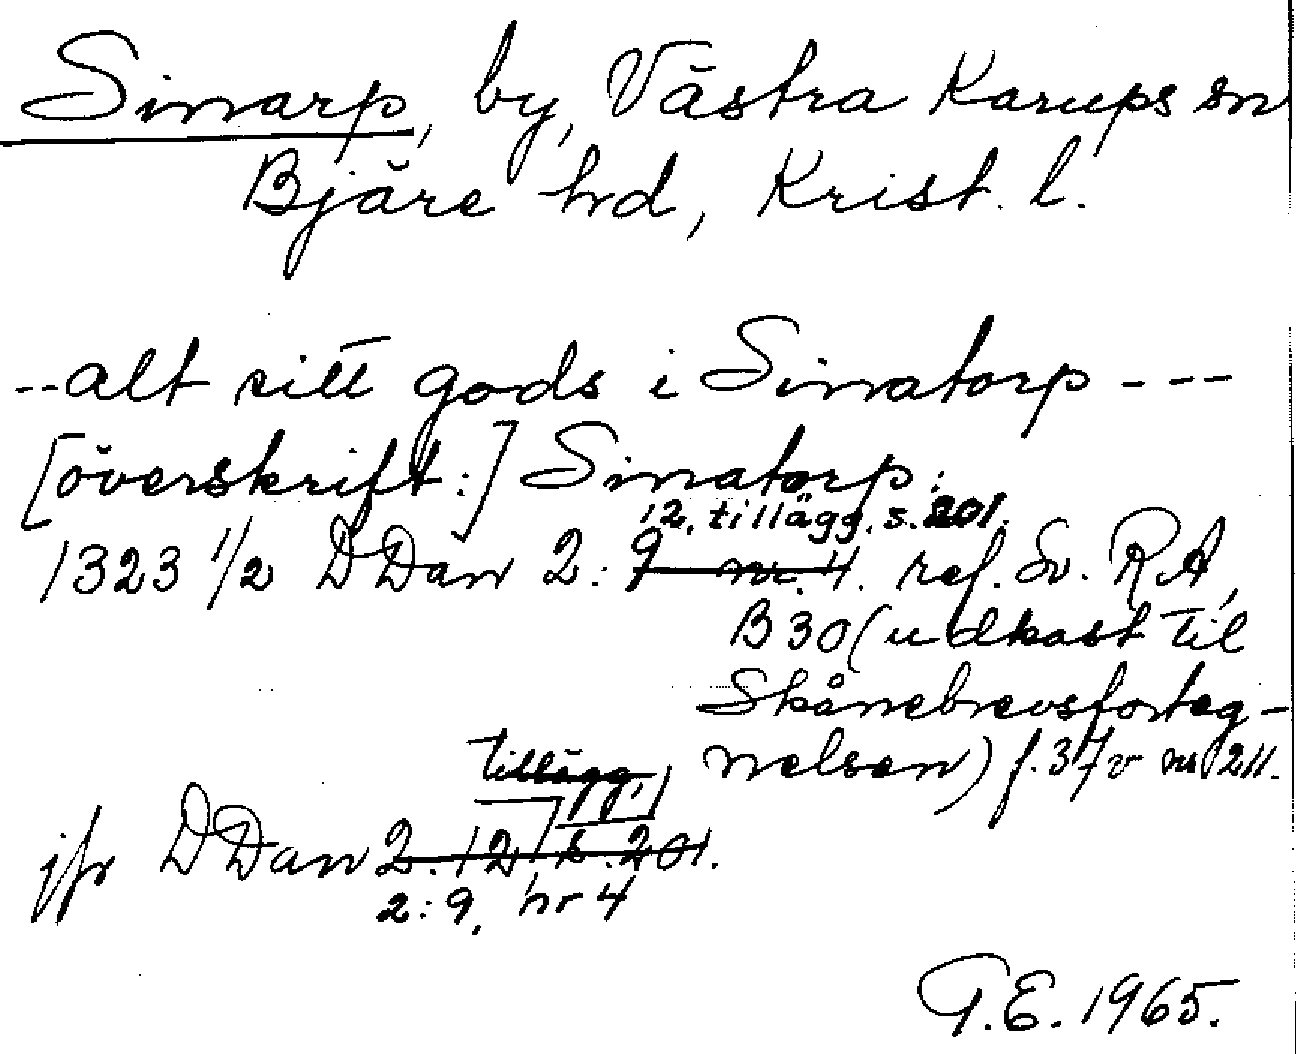 Sinarp, by, Västra Karups sn
Bjäre hd, Krist. l.
--alt sitt gods i Sinatorp ---
[överskrift:] Sinatorp:
12, tillägg, s. 201.
1323 1/2 DDan 2: 9 nr. 4. ref. Sv. RA,
B 30 (udkast til
Skånebrevsforteg-
nelsen) f. 37v nr 211.
tillägg,
jfr DDan 2. 12 s. 201.
2: 9, nr 4
G.E. 1965.